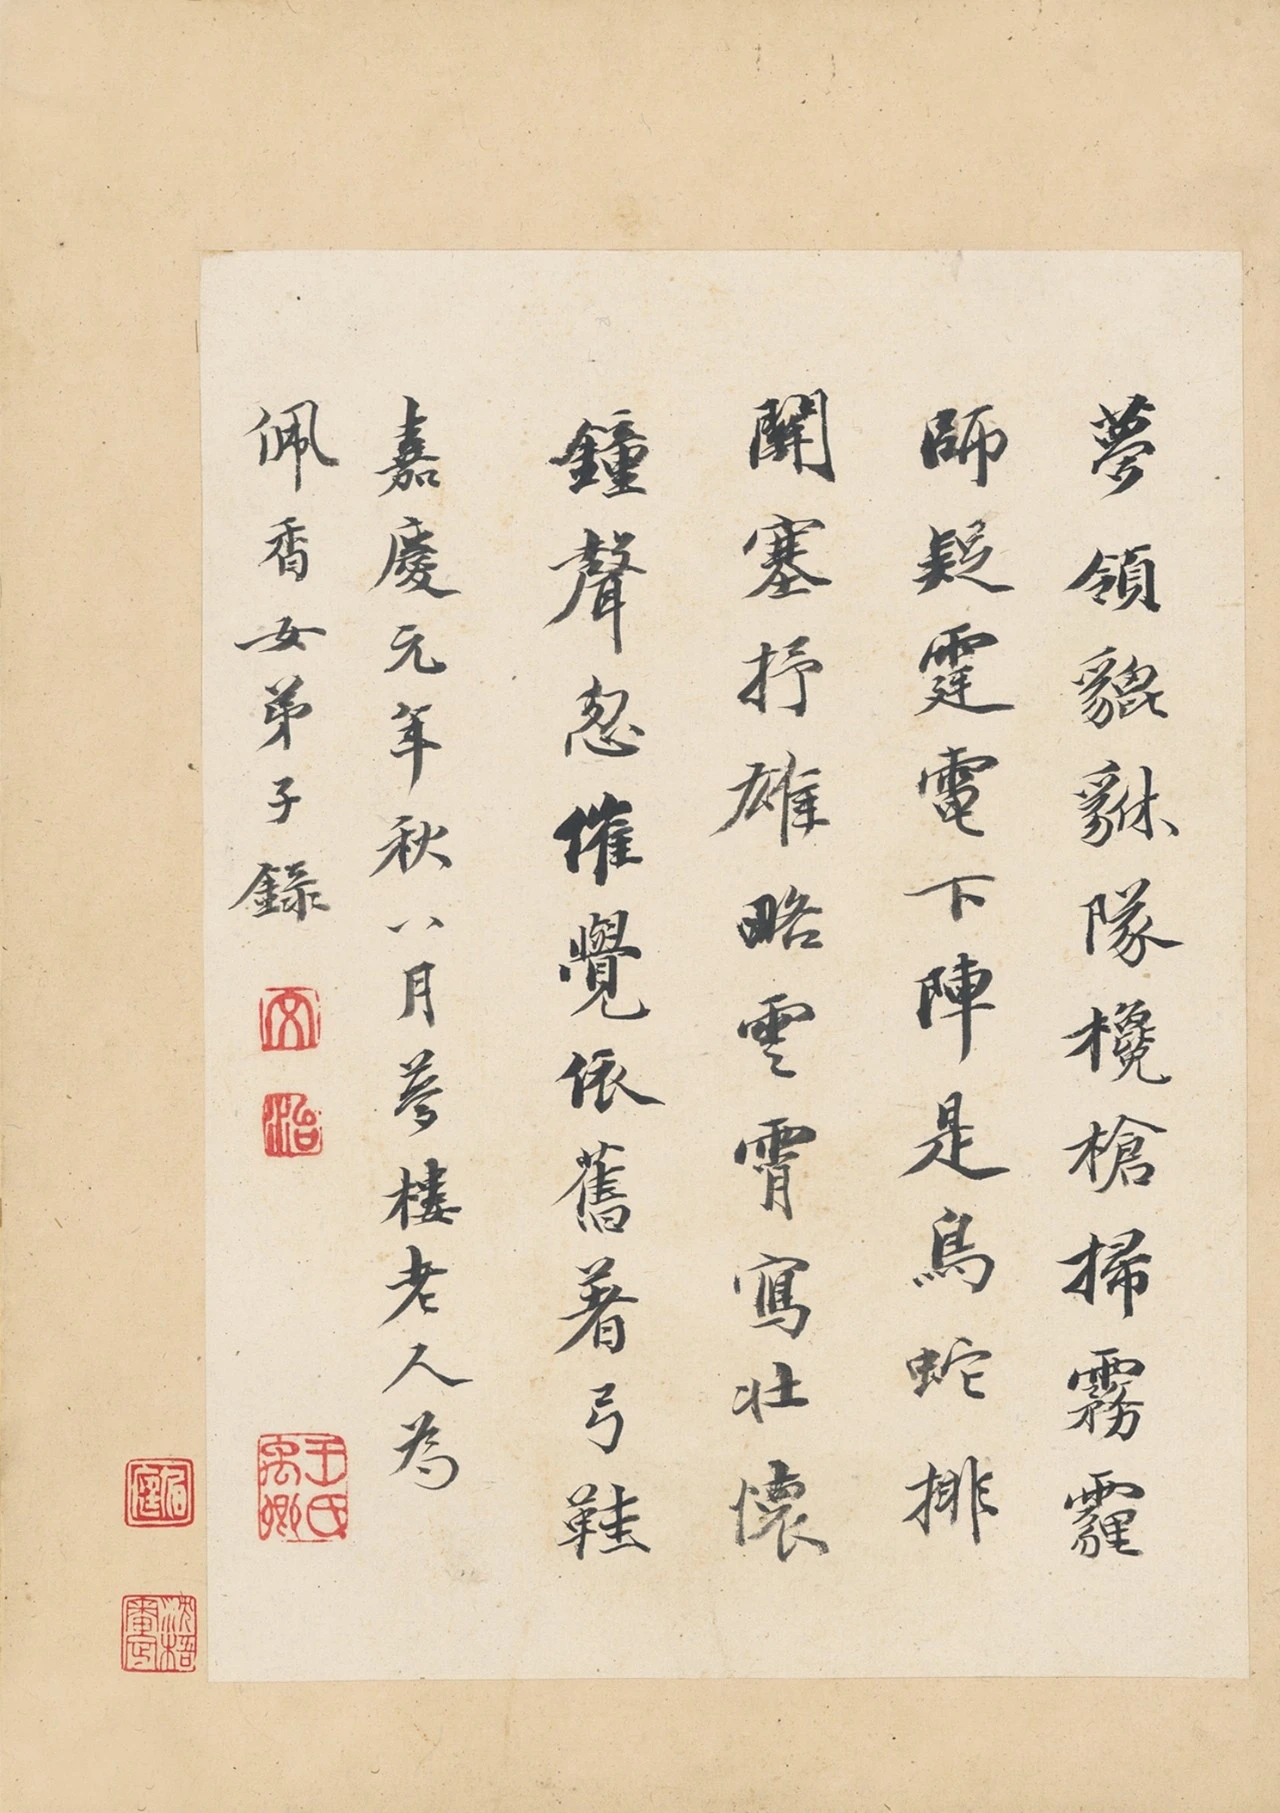 夢領貔貅隊欃槍掃霧霾
師疑霆電下陣是鳥蛇排
關塞抒雄略雲霄寫壯懷
鐘聲忽催覺依舊著弓鞋
嘉慶元年秋八月夢樓老人為
佩香女弟子錄
文
治
王氏禹卿